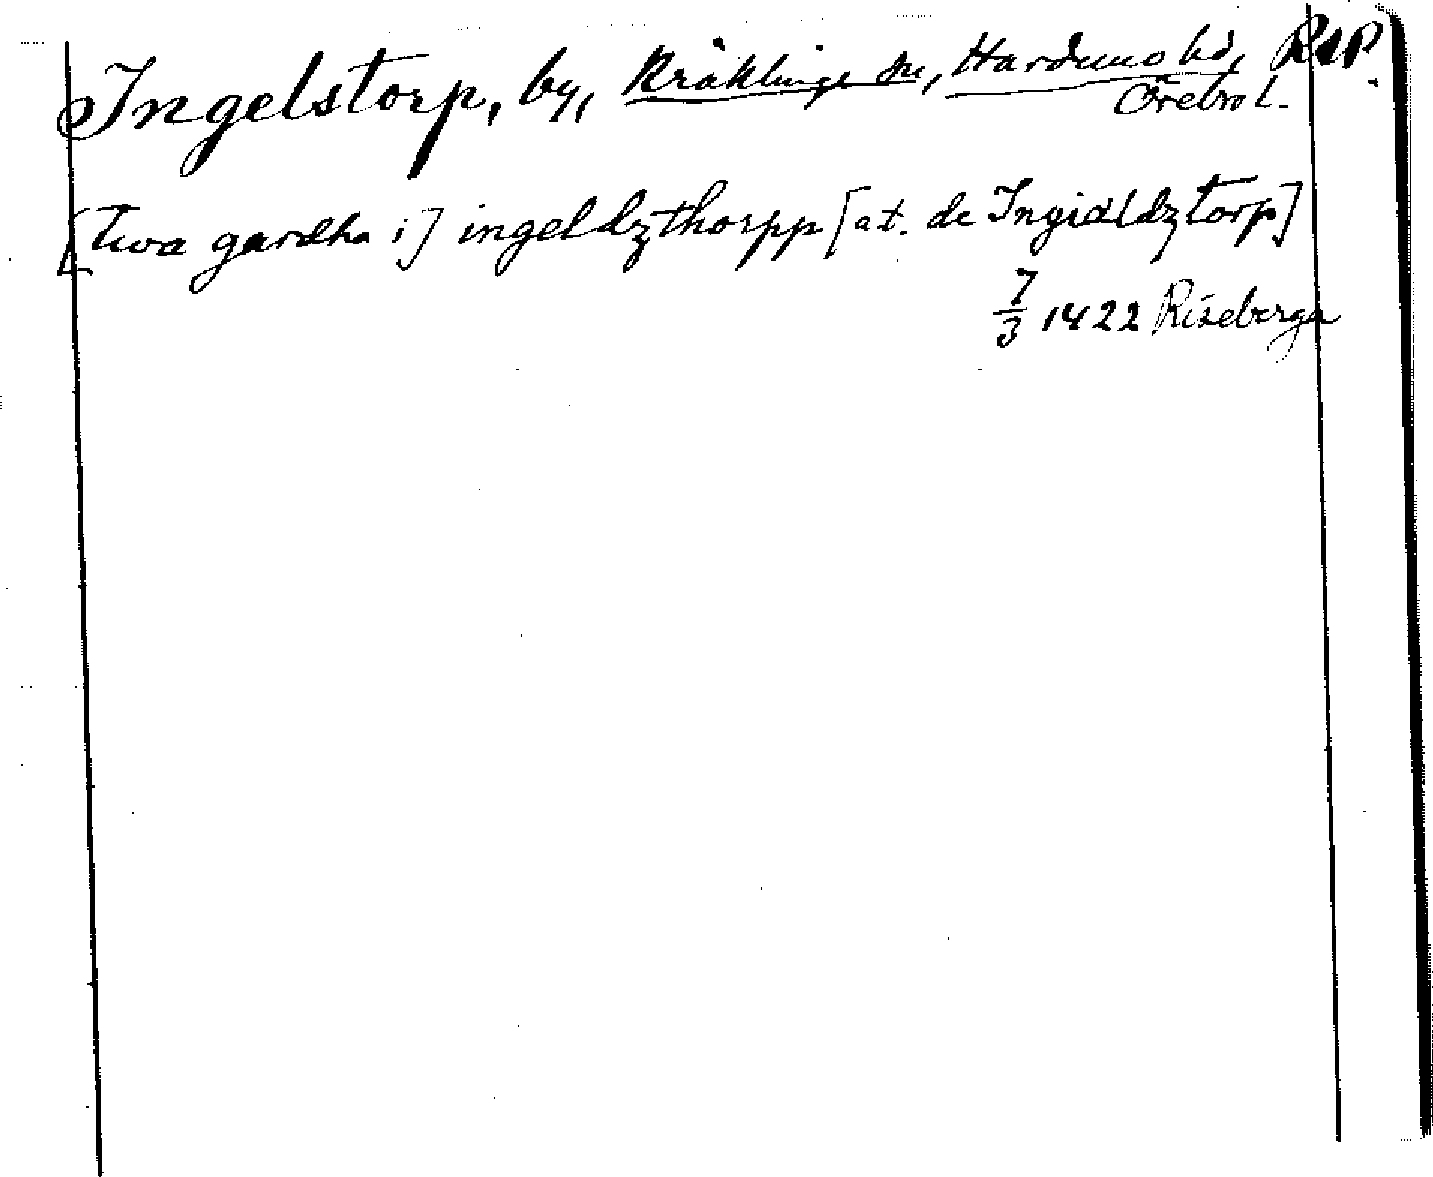 Ingelstorp, by, Kräklinge sn, Hardemo hd, RAP.
Örebro l.
[twa gardha i] ingeldzthorpp [a t. de Ingiäldztorp]
7/3 1422 Riseberga